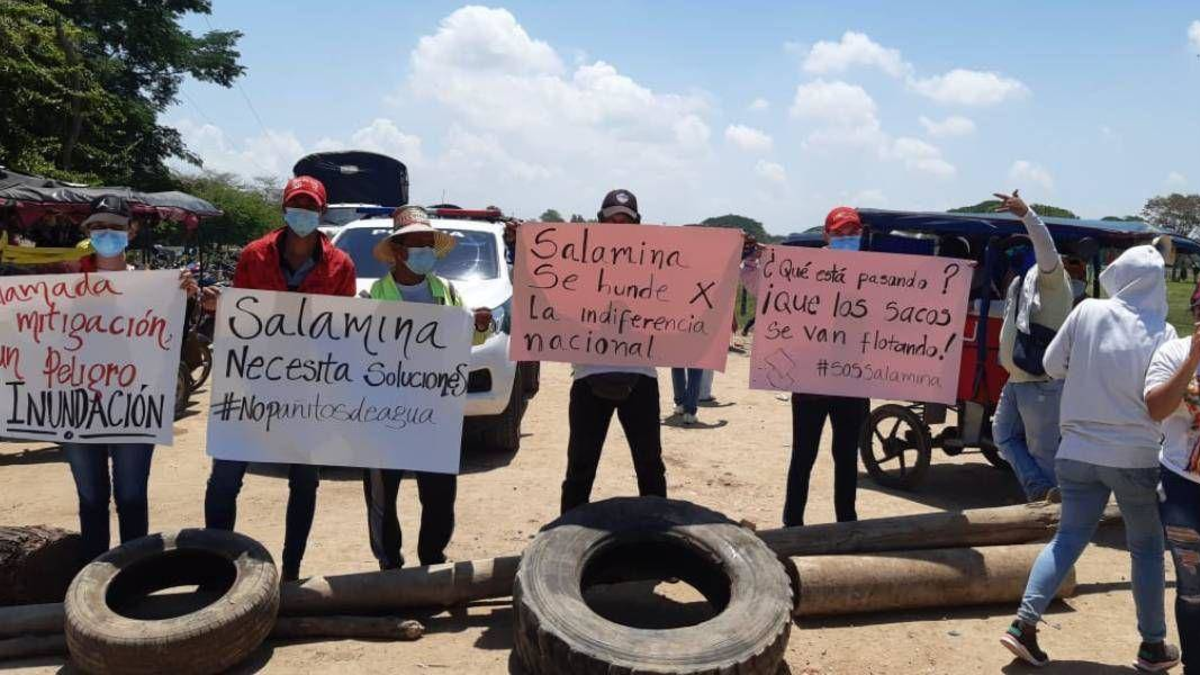 lamada
mitigación,
un Peligro
INUNDACIÓN
Salamina
Necesita Soluciones
#Nopañitosdeagua
Salamina
Se hunde x
La indiferencia
nacional.
¿Qué está pasando?
¡QUE los SACOS
Se van flotando!
#SOSSalamina